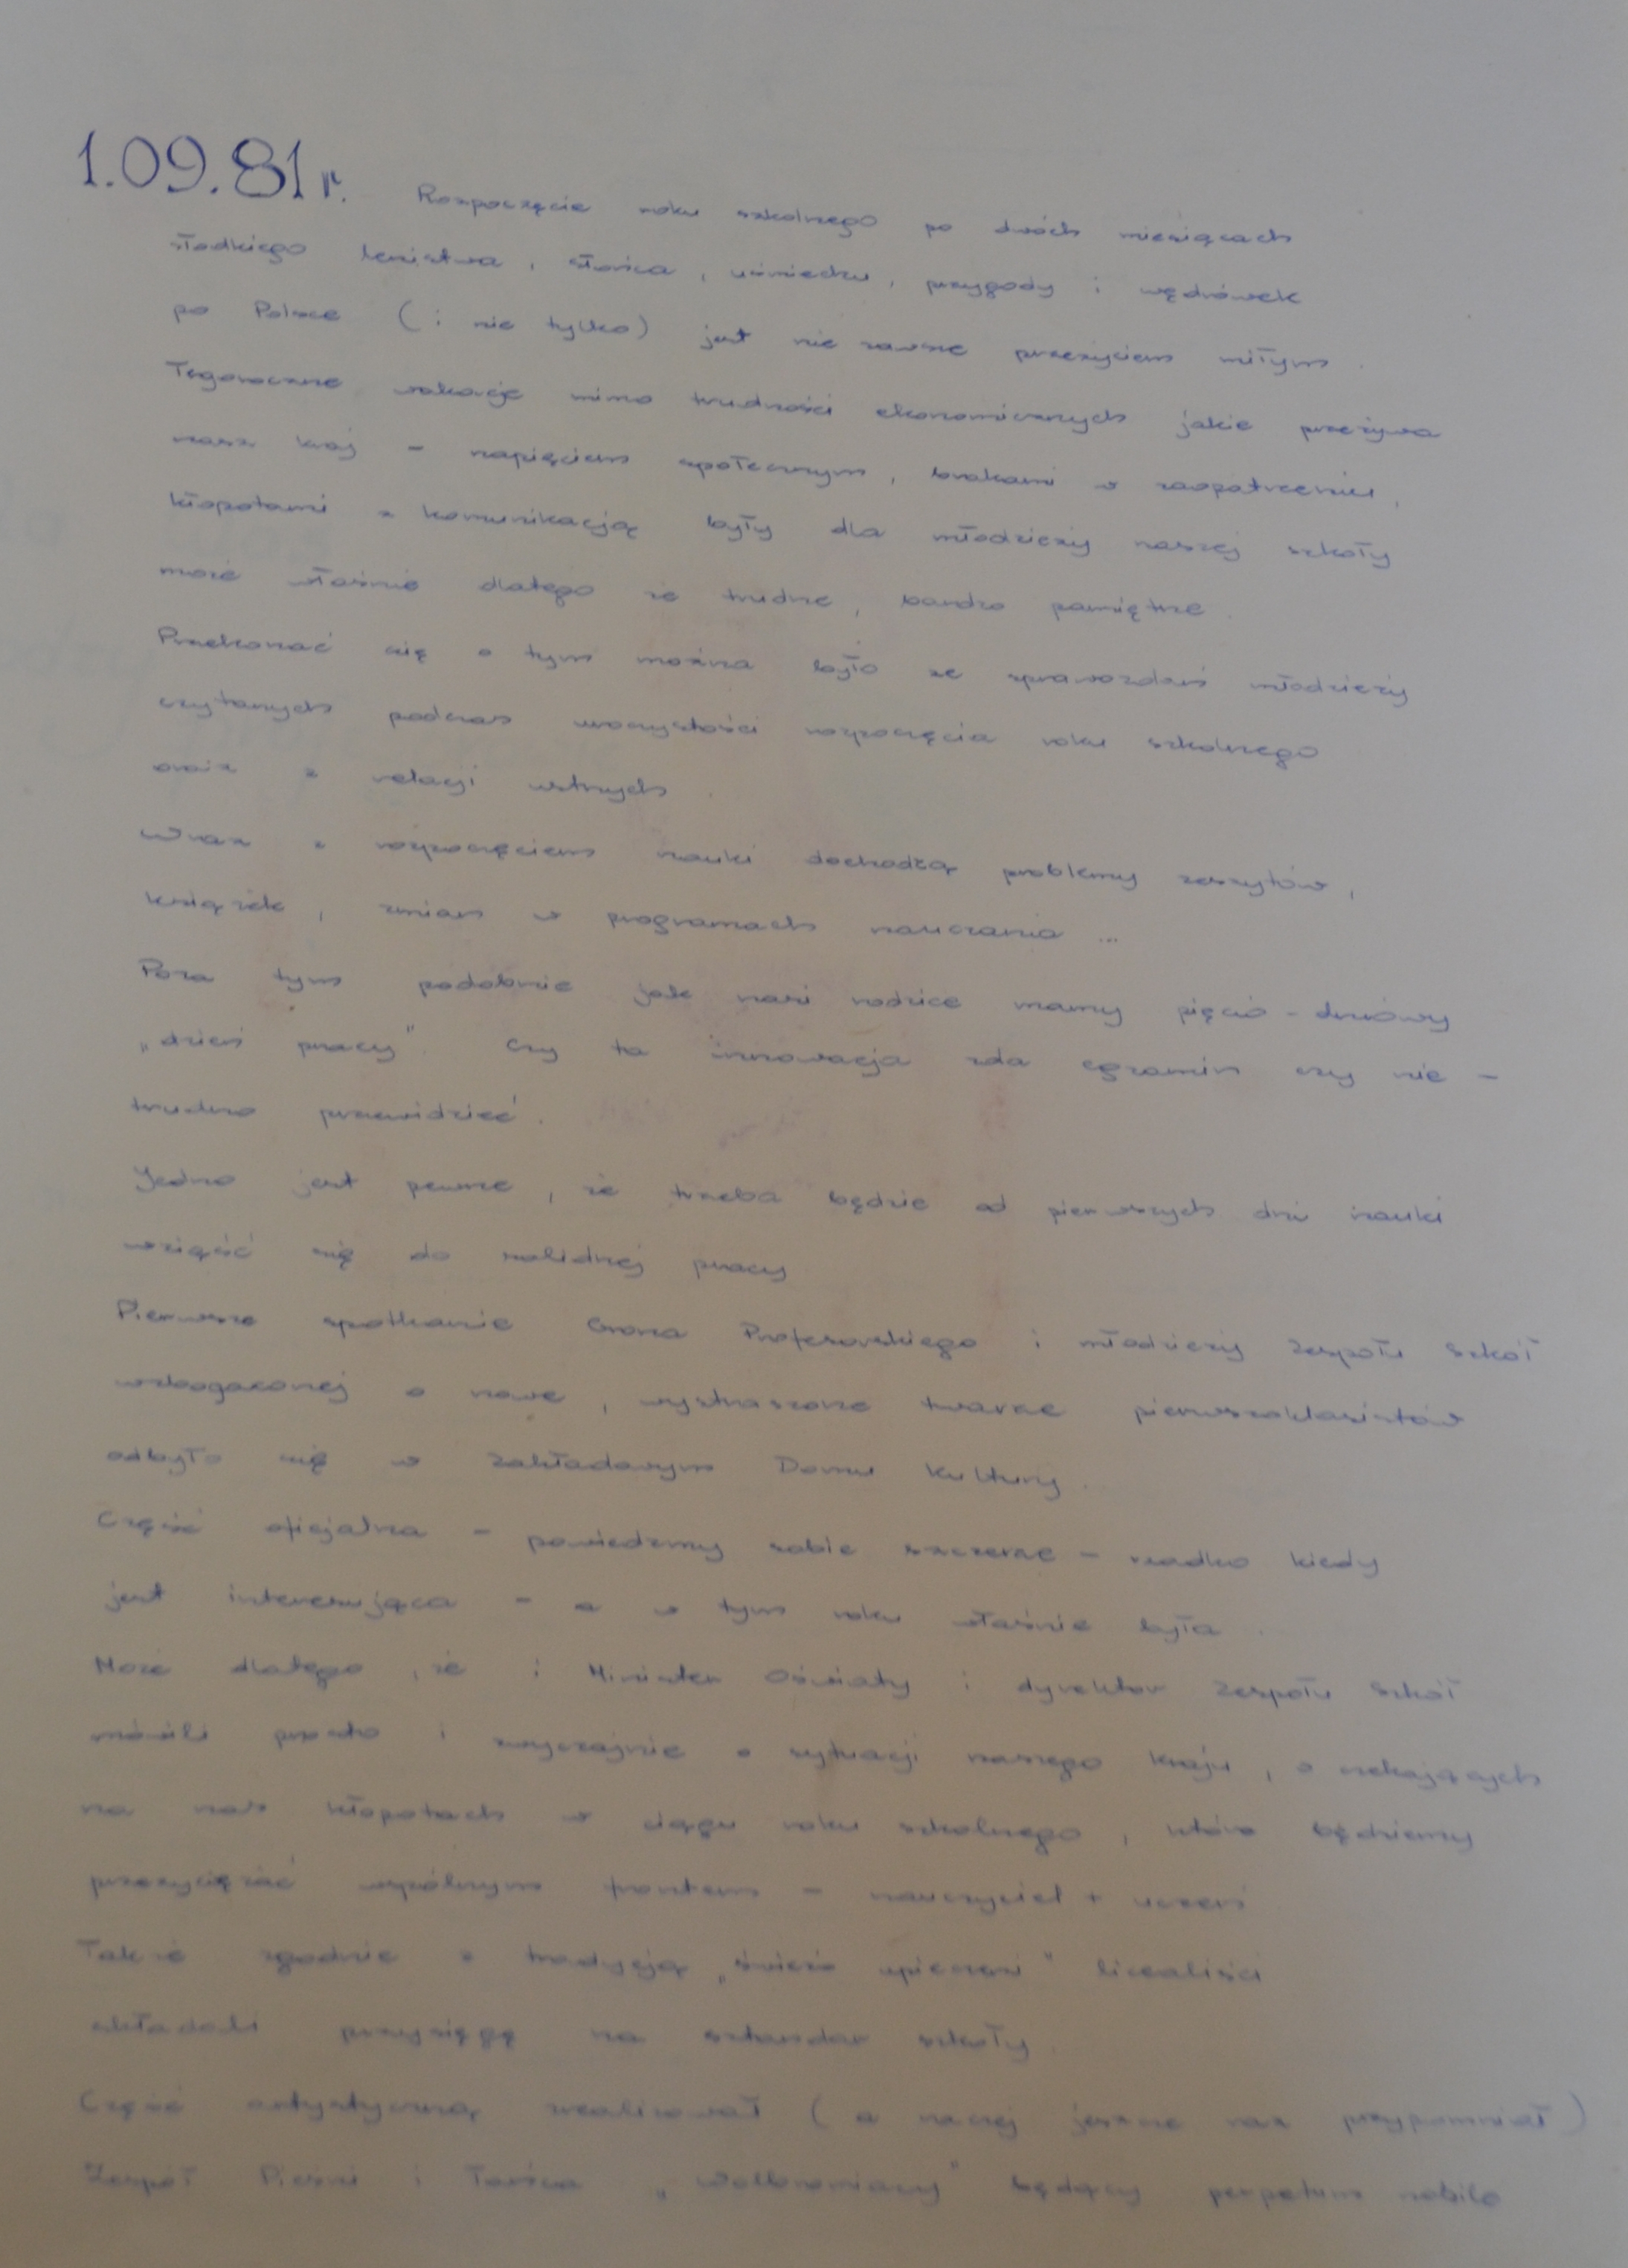 1.09.81 r. Rozpoczęcie roku szkolnego po dwóch miesiącach
słodkiego lenistwa, słońca, uśmiechu, przygody i wędrówek
po Polsce (i nie tylko) jest nie zawsze przeżyciem miłym.
Tegoroczne wakacje mimo trudności ekonomicznych jakie przeżywa
nasz kraj - napięciem społecznym, brakami w zaopatrzeniu,
kłopotami z komunikacją były dla młodzieży naszej szkoły
może właśnie dlatego że trudne, bardzo pamiętne.
Przekonać się o tym można było ze sprawozdań młodzieży
czytanych podczas uroczystości rozpoczęcia roku szkolnego
oraz z relacji ustnych.
Wraz z rozpoczęciem nauki dochodzą problemy zeszytów,
książek, zmian w programach nauczania ...
Poza tym podobnie jak nasi rodzice mamy pięcio-dniowy
„dzień pracy". Czy ta innowacja zda egzamin czy nie -
trudno przewidzieć.
Jedno jest pewne, że trzeba będzie od pierwszych dni nauki
wziąść się do solidnej pracy
Pierwsze spotkanie Grona Profesorskiego i młodzieży Zespołu Szkół
wzbogaconej o nowe, wystraszone twarze pierwszoklasistów
odbyło się w Zakładowym Domu Kultury.
Część oficjalna - powiedzmy sobie szczerze - rzadko kiedy
jest interesująca - a w tym roku właśnie była.
Może dlatego, że i Minister Oświaty i dyrektor Zespołu Szkół
mówili prosto i zwyczajnie o sytuacji naszego kraju, o czekających
na nas kłopotach w ciągu roku szkolnego, które będziemy
przezwyciężać wspólnym frontem - nauczyciel + uczeń
Także zgodnie z tradycją „świeżo upieczeni" licealiści
składali przysięgę na sztandar szkoły.
Część artystyczną zrealizował (a raczej jeszcze raz przypomniał)
Zespół Pieśni i Tańca „Wolbromiacy" będący perpetum mobile